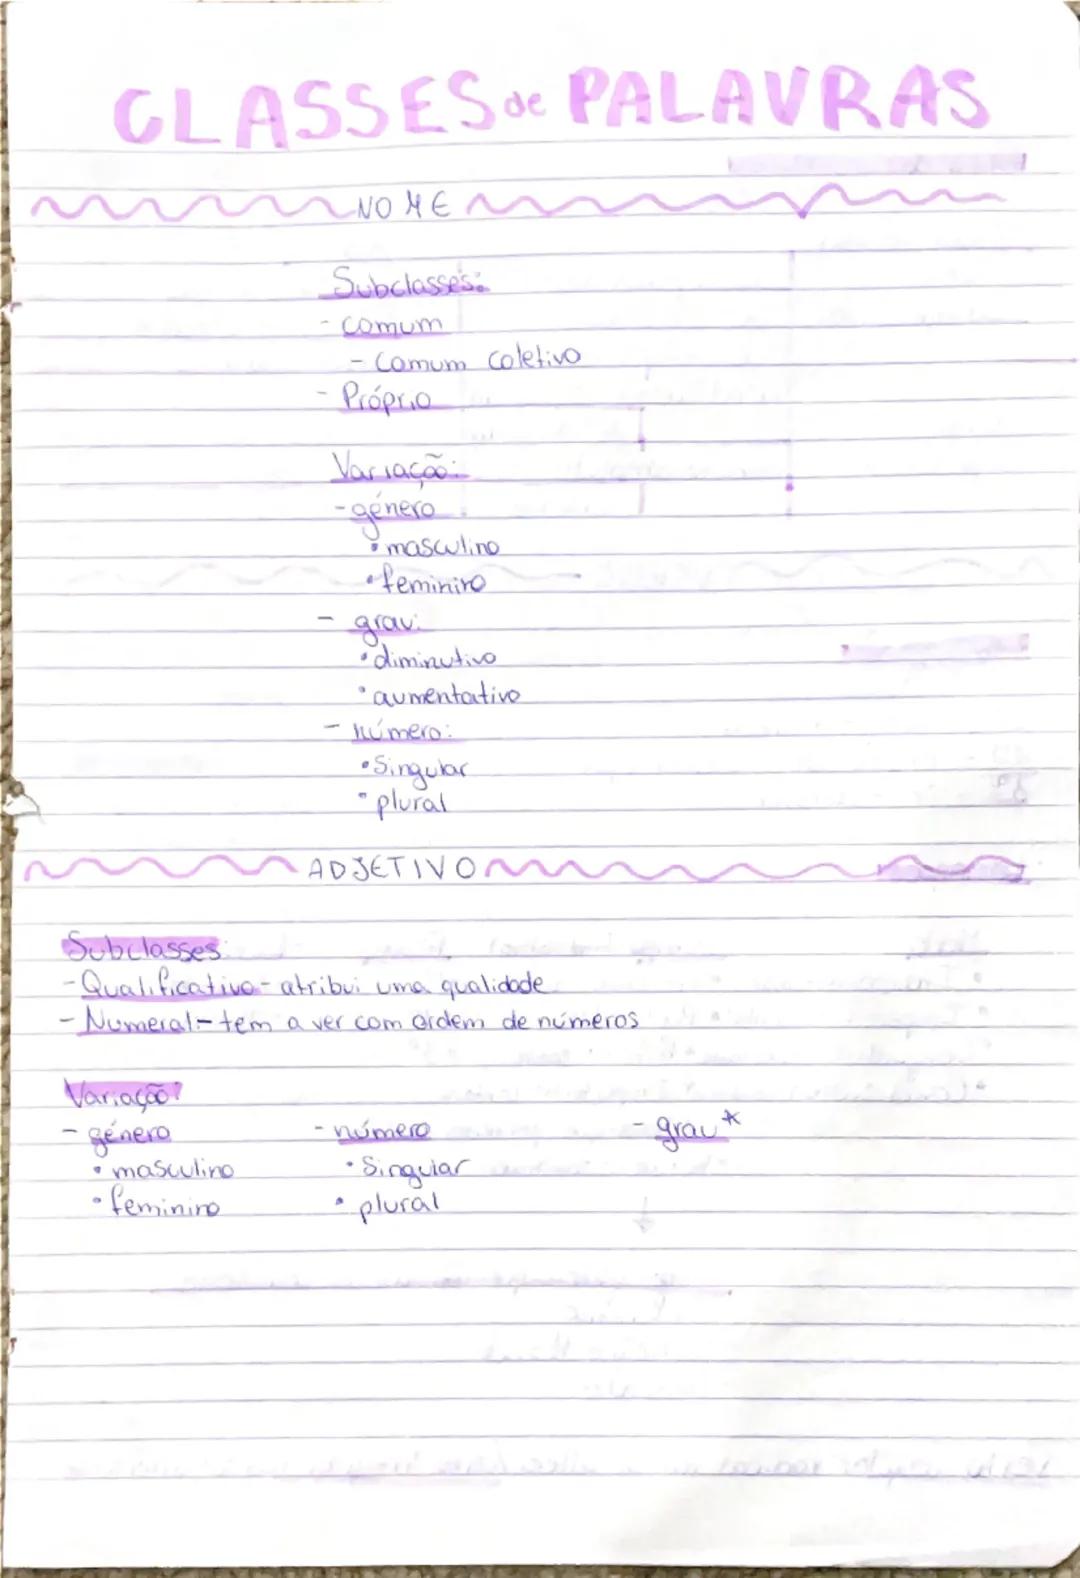 CLASSES de PALAVRAS
NOME
Subclasses:
- comum
- Comum coletivo
- Próprio
Variação:
- género
• masculino
• feminino
- grau:
• diminutivo
• aumentativo
- número:
• Singular
• plural
ADJETIVO
Subclasses:
- Qualificativo - atribui uma qualidade
- Numeral - tem a ver com ordem de números
Variação:
- género - número - grau *
• masculino • Singular
• feminino • plural